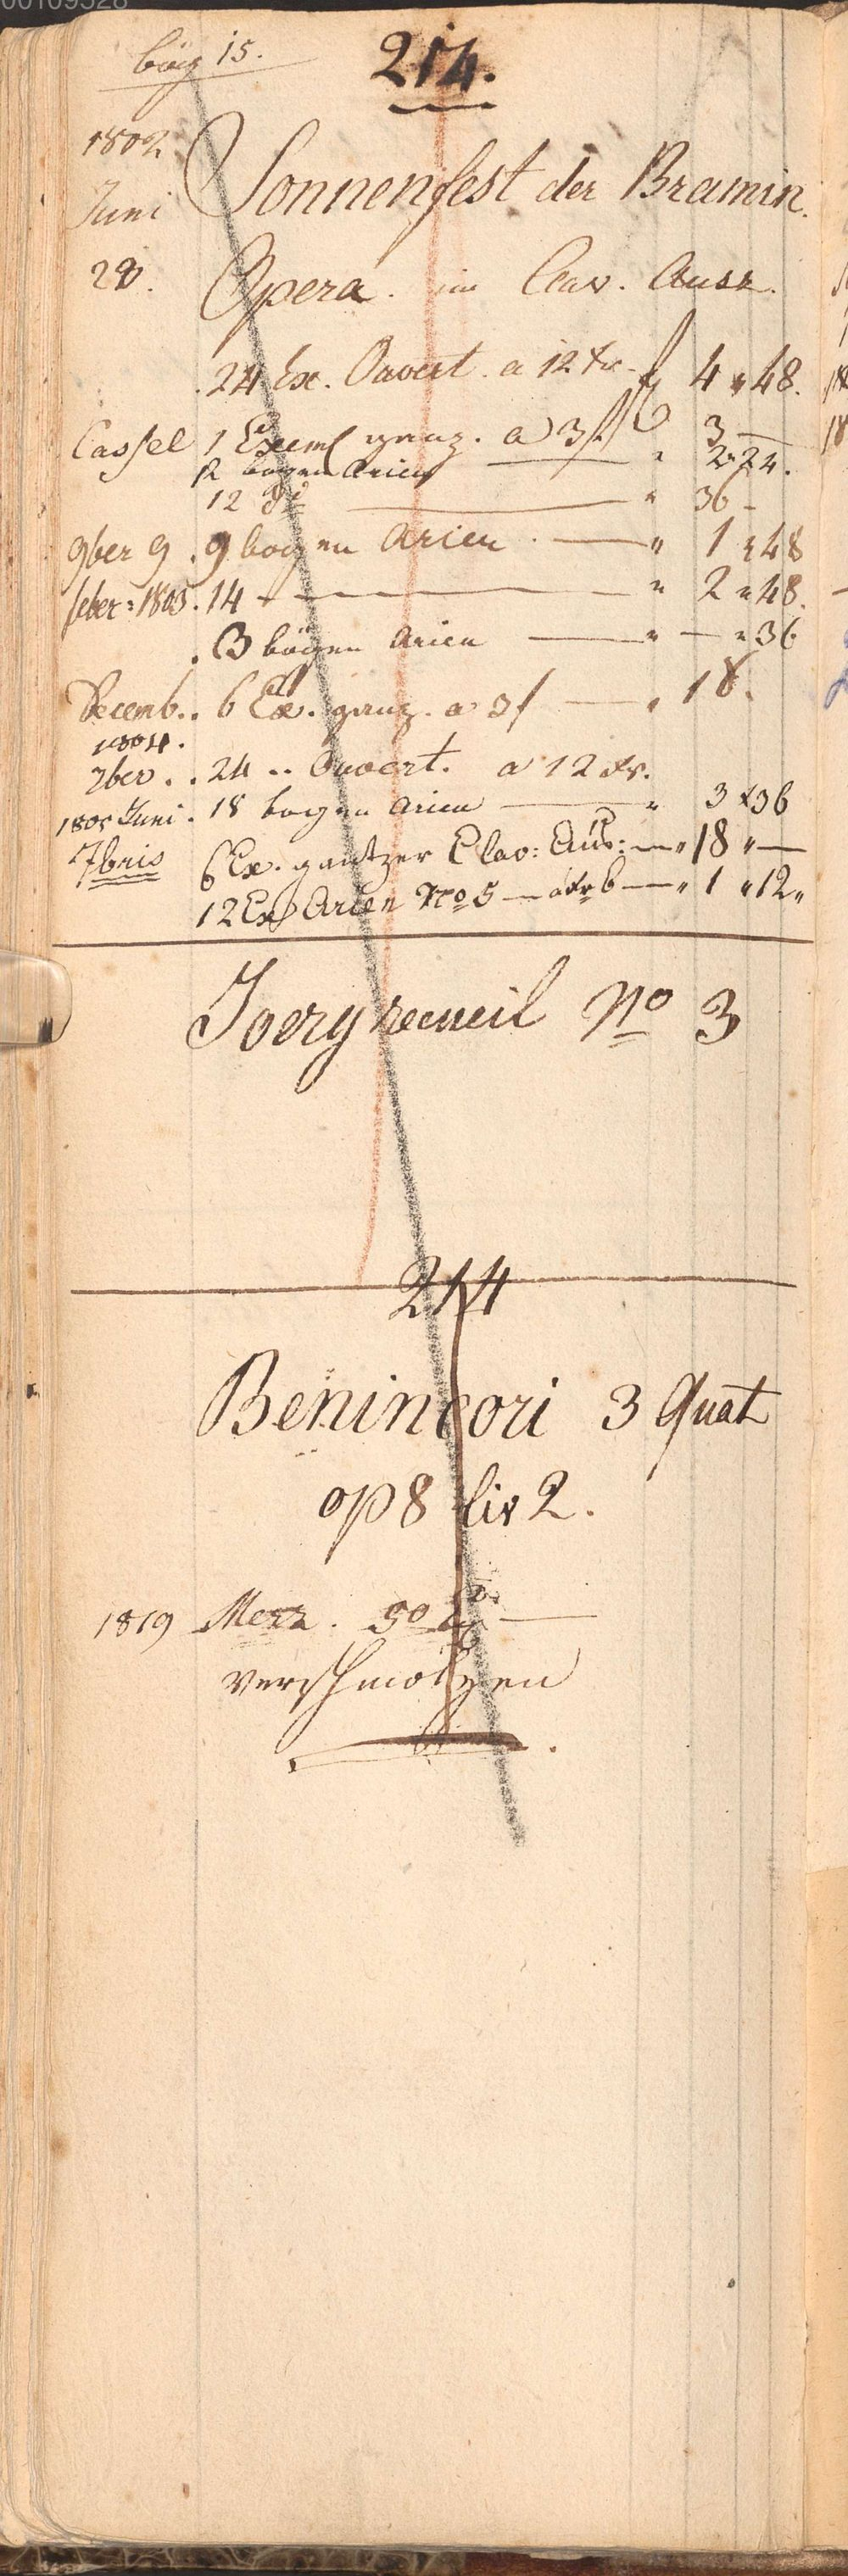 00109528
bög 15.
214.
1802 Sonnenfest der Bramin.
Juni
28. Opera. im Clav. Ausz.
24 Ex. Ouvert. a 12 xr. f 4 " 48.
Cassel 1 Exempl ganz. a 3 f 3 —
12 bogen Arien — " 2 " 24.
12 di — " 36 -
9ber 9. 9 bogen Arien — " 1 " 48
feber: 1803. 14 - — " 2 " 48.
. 3 bögen Arien — " — " 36
Decemb.. 6 Ex. ganz. a 3 f — " 18.
1804.
7ber.. 24 .. Ouvert. a 12 xr.
1805 Juni. 18 bogen Arien — " 3 x 36
7bris 6 Ex. gantzer Clav: Aus: — " 18 " —
12 Ex Arien No 5 — a xr 6 — " 1 " 12 "
Joery recueil No 3
214
Benincori 3 Quat
op 8 liv 2.
1819 Merz. 50
verschmolzen